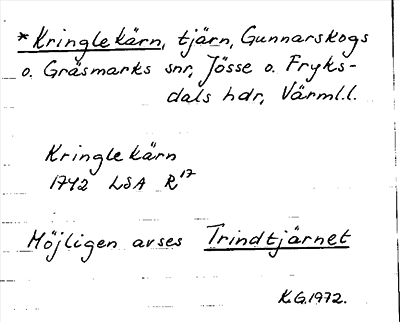 *Kringlekärn, tjärn, Gunnarskogs
o. Gräsmarks snr, Jösse o. Fryks-
dals hdr, Värml.l.
Kringlekärn
1742 LSA R17
Möjligen avses Trindtjärnet
K.G.1972.